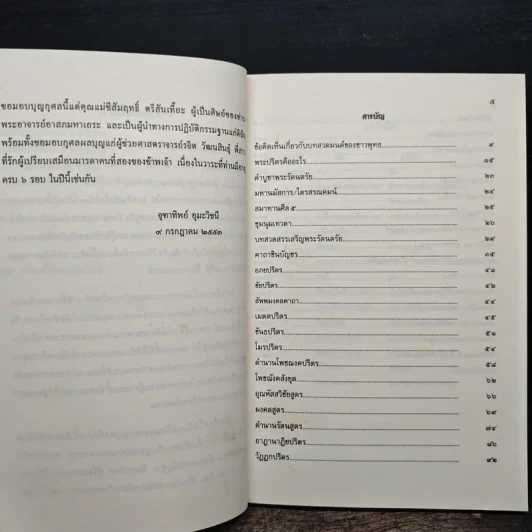 ขอมอบบุญกุศลนี้แด่คุณแม่ชีสัมฤทธิ์ ตรีสันเที๊ยะ ผู้เป็นศิษย์ของท่าน
พระอาจารย์อาสภมหาเถระ และเป็นผู้นำทางการปฏิบัติกรรมฐานแก่
พร้อมทั้งขออุทิศกุศลผลบุญแก่ผู้ช่วยศาสตราจารย์รจิต วัฒนสินธุ์
ที่รักผู้เปรียบเสมือนมารดาคนที่สองของข้าพเจ้า เนื่องในวาระที่ท่าน
ครบ ๖ รอบ ในปีนี้เช่นกัน
จุฑาทิพย์ อุมะวิชนี
๙ กรกฎาคม ๒๕๕๓
๕
สารบัญ
ข้อคิดเห็นเกี่ยวกับบทสวดมนต์ของชาวพุทธ ๙
พระปริตรคืออะไร ๑๕
คำบูชาพระรัตนตรัย ๒๓
มหานมัสการ/ไตรสรณคมน์ ๒๔
สมาทานศีล ๕ ๒๕
ชุมนุมเทวดา ๒๖
บทสวดสรรเสริญพระรัตนตรัย ๒๙
คาถาชินบัญชร ๓๕
อภยปริตร ๔๑
ชัยปริตร ๔๒
สัพพมงคลคาถา ๔๔
เมตตปริตร ๔๕
ขันธปริตร ๕๑
โมรปริตร ๕๔
ตำนานโพชฌงคปริตร ๕๘
โพชฌังคสังยุต ๖๒
อุณหัสสวิชัยสูตร ๖๖
มงคลสูตร ๖๙
ตำนานรัตนสูตร ๗๔
อาฏานาฏิยปริตร ๘๖
วัฏฏกปริตร ๙๒